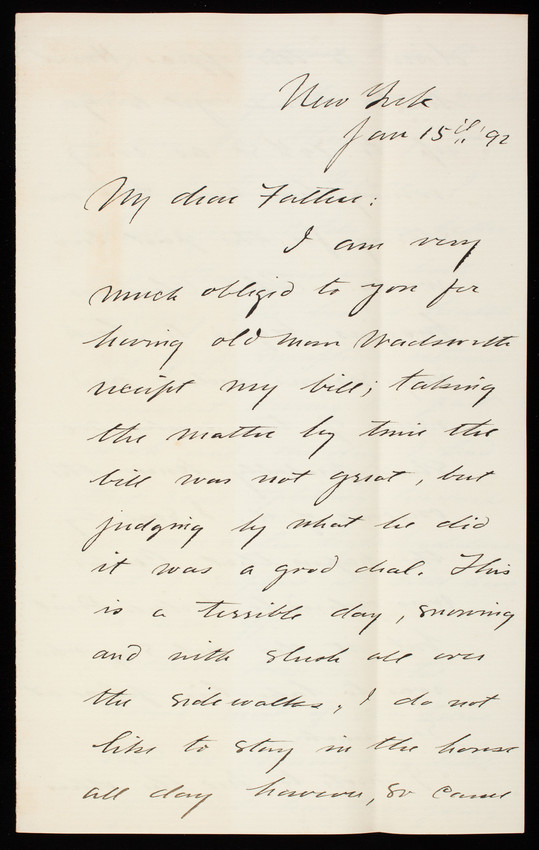 New York
Jan 15th '92
My dear Father:
I am very
much obliged to you for
having old man Wadsworth
receipt my bill; taking
the matter by time the
bill was not great, but
judging by what he did
it was a good deal. This
is a terrible day, snowing
and with slush all over
the sidewalks, I do not
like to stay in the house
all day however, so came